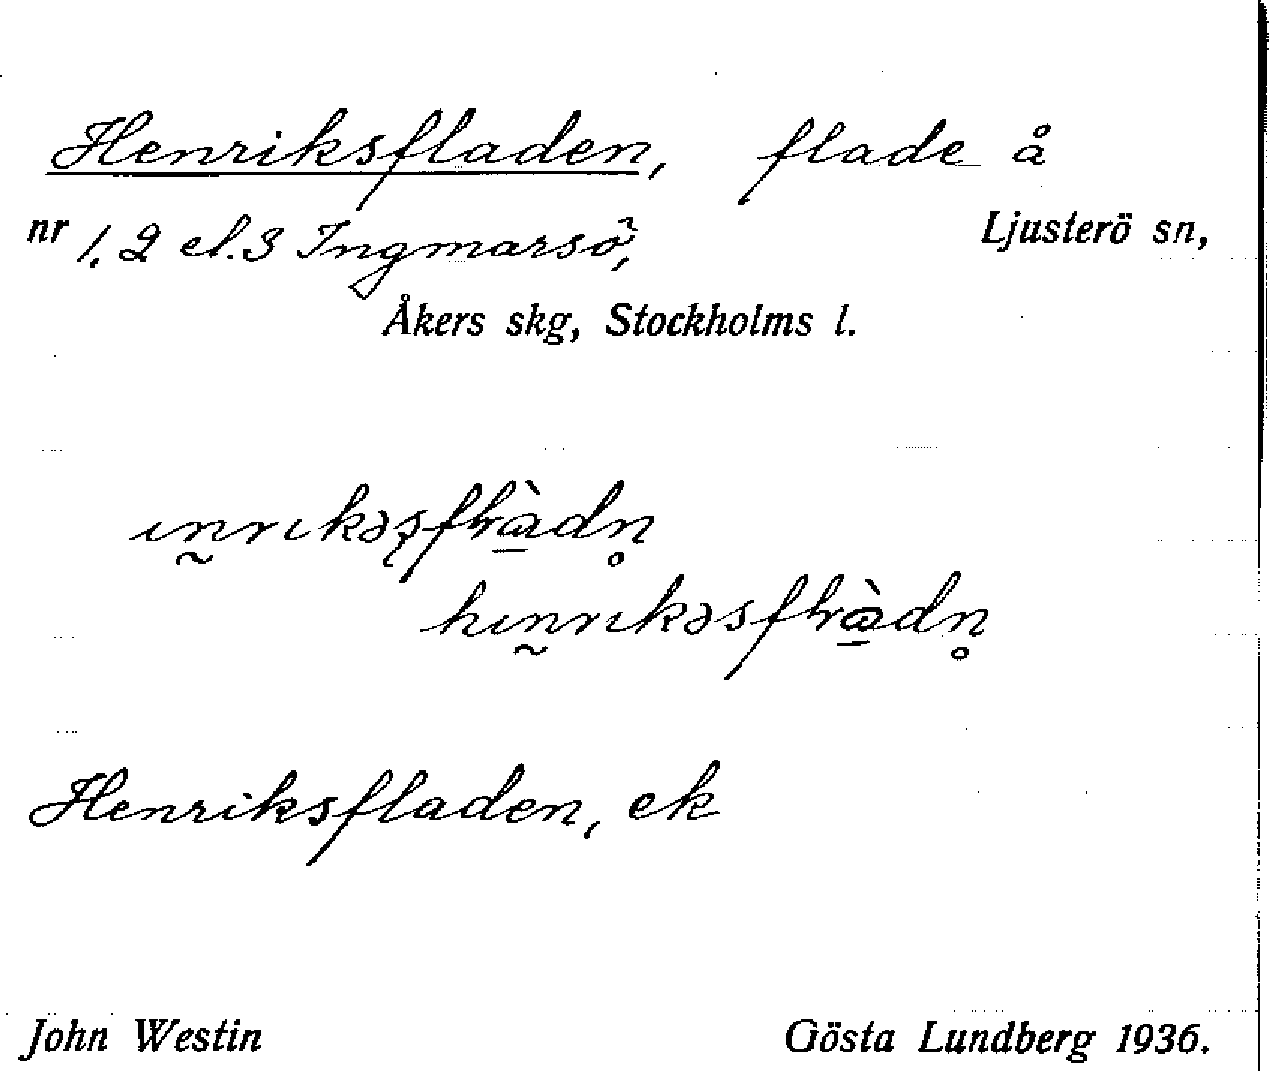 Henriksfladen, flade å
nr 1, 2 el. 3 Ingmarsö, Ljusterö sn,
Åkers skg, Stockholms l.
Henriksfladen, ek
John Westin Gösta Lundberg 1936.